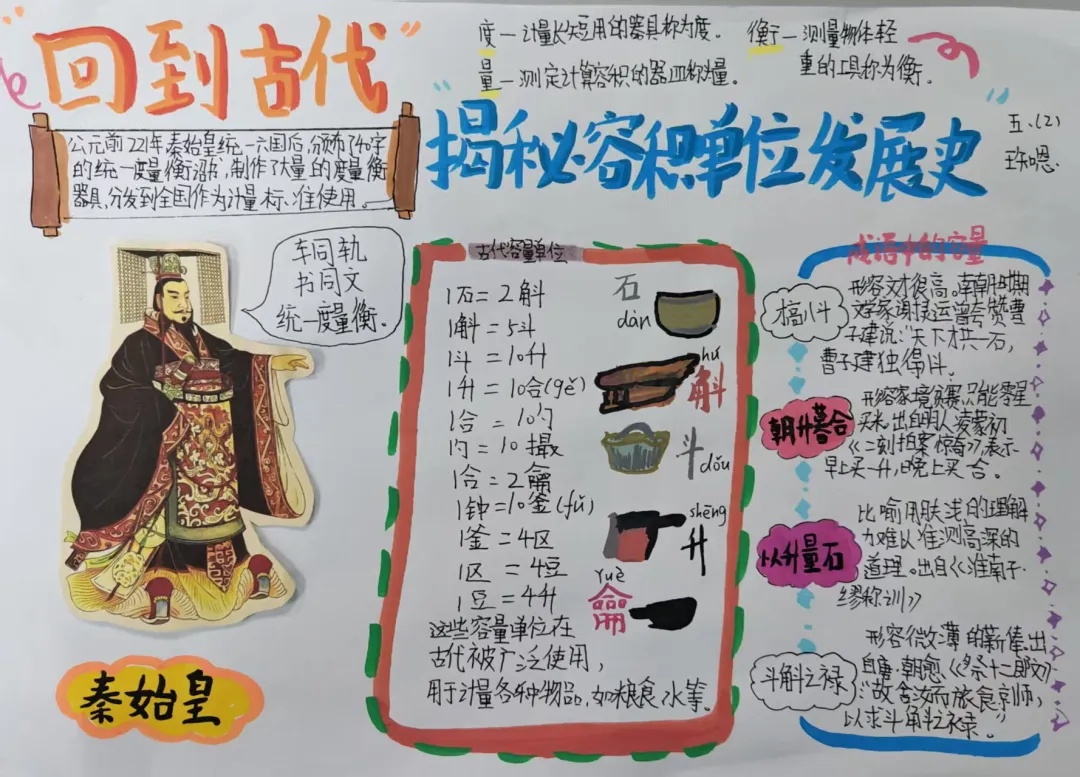 “回到古代”
度—计量长短用的器具称为度。
量—测定计算容积的器皿称为量。
衡—测量物体轻
重的工具称为衡。
“揭秘容积单位发展史”
五.(2)
公元前221年秦始皇统一六国后,颁布了40字
的统一度量衡诏书,制作了大量的度量衡
器具,分发到全国作为计量标准使用。
车同轨
书同文
统一度量衡.
秦始皇
古代容量单位
1石=2斛
1斛=5斗
1斗=10升
1升=10合(gě)
1合=10勺
1勺=10撮
1合=2龠
1钟=10釜(fǔ)
1釜=4区
1区=4豆
1豆=4升
这些容量单位在
古代被广泛使用,
用于计量各种物品,如粮食、水等.
石
dàn
hú
斛
斗
dǒu
shēng
升
yuè
龠
成语中的容量
才高八斗
形容才很高。南朝时期
文学家谢灵运夸赞曹
子建说:“天下才共一石,
曹子建独得八斗.
朝升暮合
形容家境贫寡只能零星
买米.出自明人凌蒙初
《二刻拍案惊奇》表示
早上买一升,晚上买一合。
以升量石
比喻用肤浅的理解
力难以准测高深的
道理。出自《淮南子·
缪称训》
斗斛之禄
形容微薄的薪俸.出
自唐·韩愈《祭十二郎文》
:“故舍汝而旅食京师,
以求斗斛之禄。”